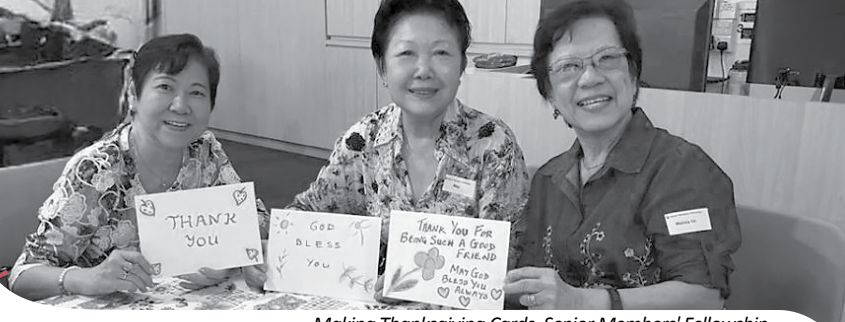 THANK
YOU
GOD
BLESS
YOU
THANK YOU FOR
BEING SUCH A GOOD
FRIEND
MAY GOD
BLESS YOU
ALWAYS
Making Thanksgiving Cards, Senior Members' Fellowship